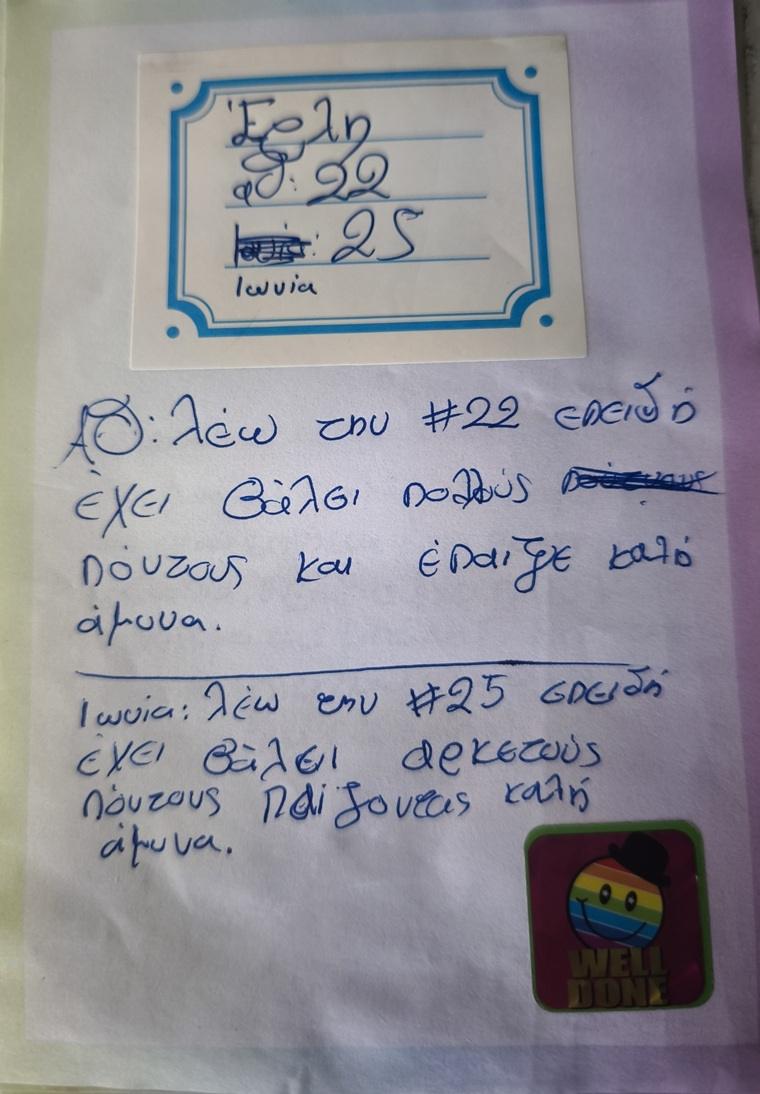 Έρλη
αθ: 22
: 25
Ιωνία
ΑΘ: λέω την #22 επειδή
έχει βάλει πολλούς
πόντους και έπαιξε καλή
άμυνα.
Ιωνία: λέω την #25 επειδή
έχει βάλει αρκετούς
πόντους παίζοντας καλή
άμυνα.
WELL
DONE